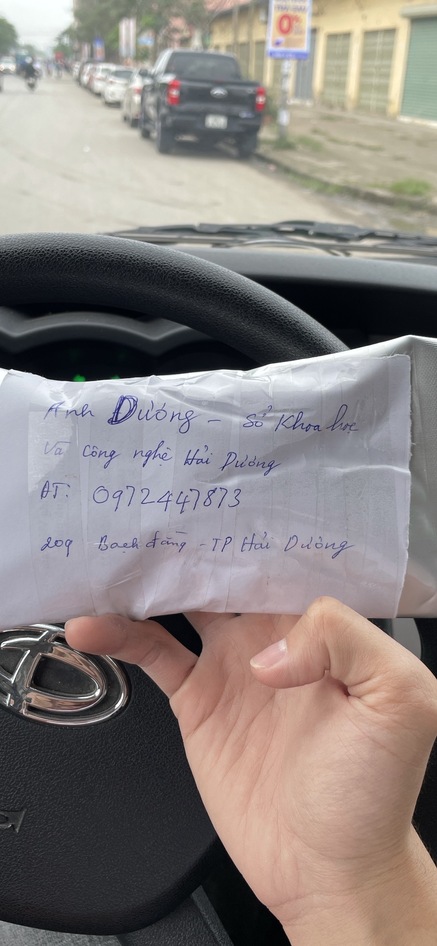 0%
Anh Dương - Sở Khoa học
Và công nghệ Hải Dương
ĐT: 0972447873
209 Bạch đằng - TP Hải Dương